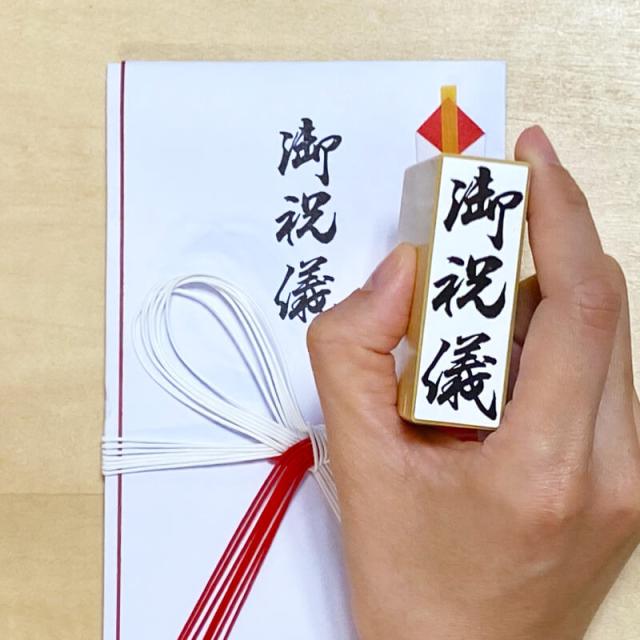 御祝儀
御祝儀